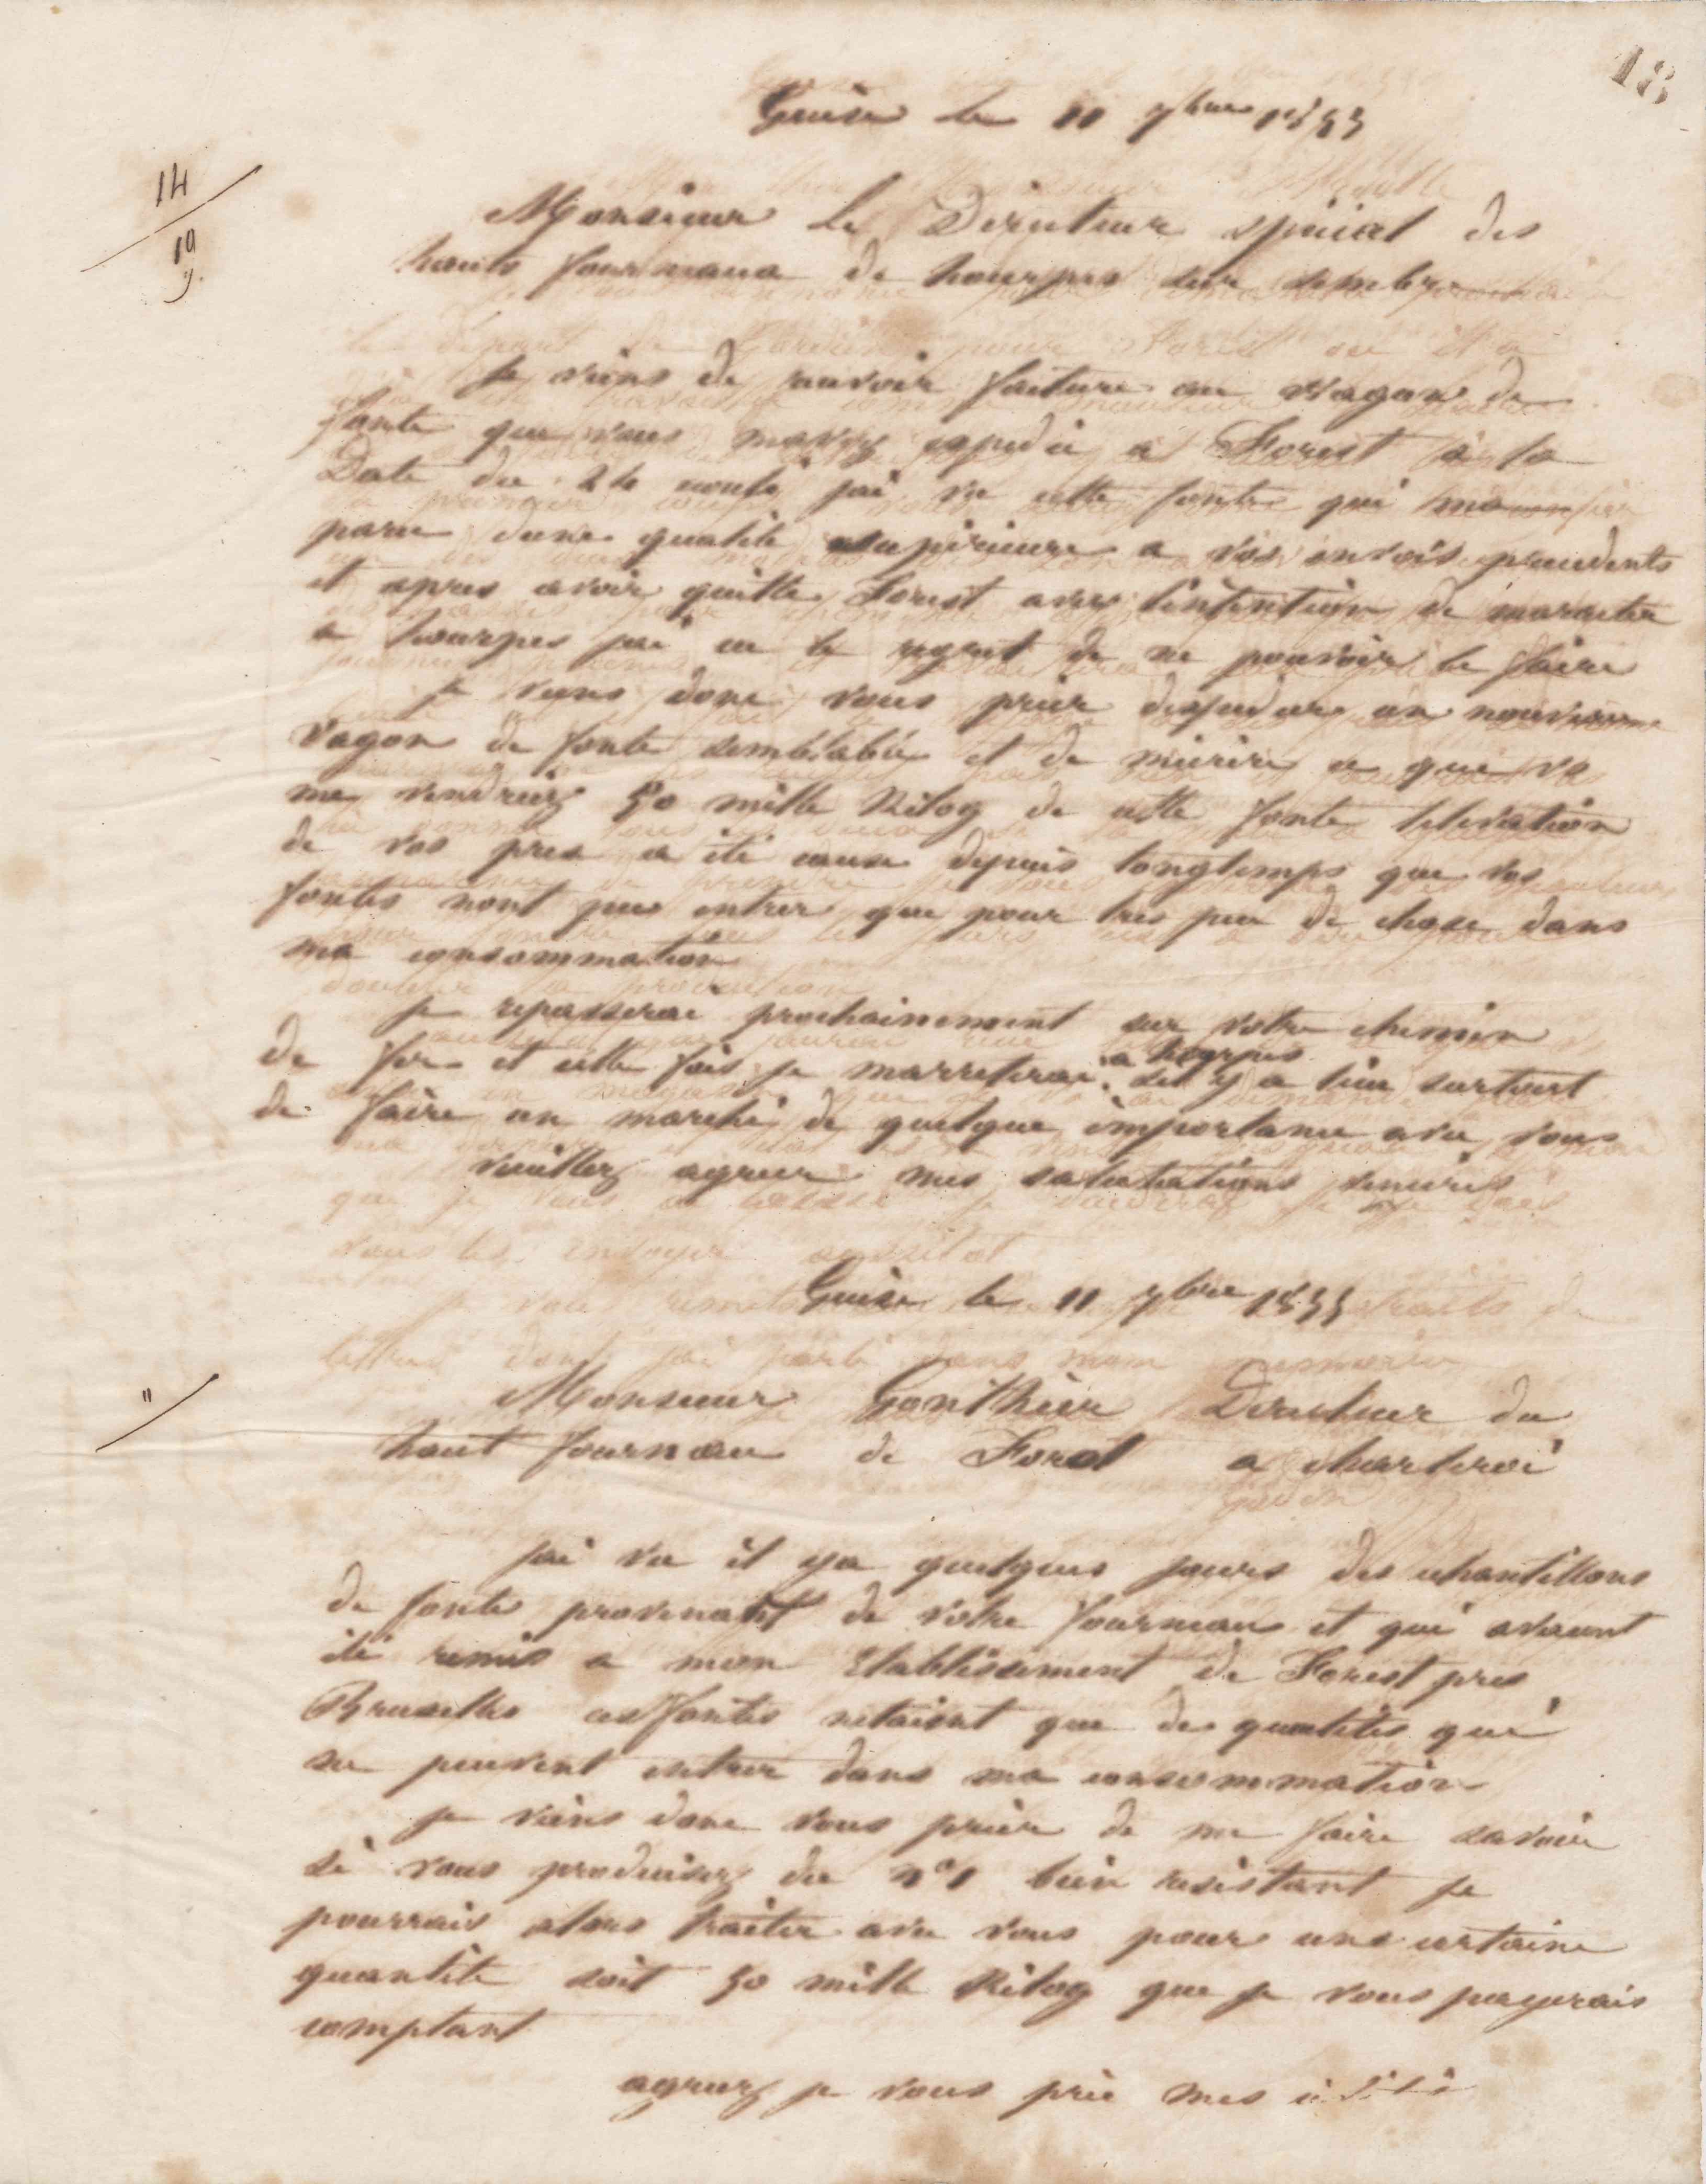 18
Guise le 11 7bre 1855
14
19
Monsieur Le Directeur spécial des
hauts fourneaux de hourpes sur sambre
Je viens de recevoir facture au Wagon de
fonte que vous mavez expedié a Forest à la
Date du 24 aout jai vu cette fonte qui ma
paru dune qualité superieure a vos envois precedents
et apres avoir quitte Forest avec lintention de mareter
a hourpes jai eu le regret de ne pouvoir le faire
je viens donc vous prier dexpedier un nouveau
Vagon de fonte semblable et de mécrire a
me vendriez 50 mille Kilog de cette fonte lelevation
de vos prix a été cause depuis longtemps que vos
fontes nont pue entrer que pour très peu de chose dans
ma consommation
je repasserai prochainement sur votre chemin
de fer et cette fois je marreterai a hourpes sil y a lieu surtout
de faire un marché de quelque importance avec vous
veuillez agreer mes salutations sinceres
Guise le 11 7bre 1855
"
Monsieur Gonthier Directeur du
haut fourneau de Forest a charleroi
jai vu il ya quelques jours des echantillons
de fonte provenant de votre fourneau et qui avaient
été remis a mon Etablissement de Forest pres
Bruxelles ces fontes netaient que de qualités qui
ne peuvent entrer dans ma consommation
je viens donc vous prier de me faire savoir
si vous produisez du n° 1 bien resistant je
pourrais alors traiter avec vous pour une certaine
quantité soit 50 mille Kilog que je vous payerais
comptant
agreez je vous prie mes